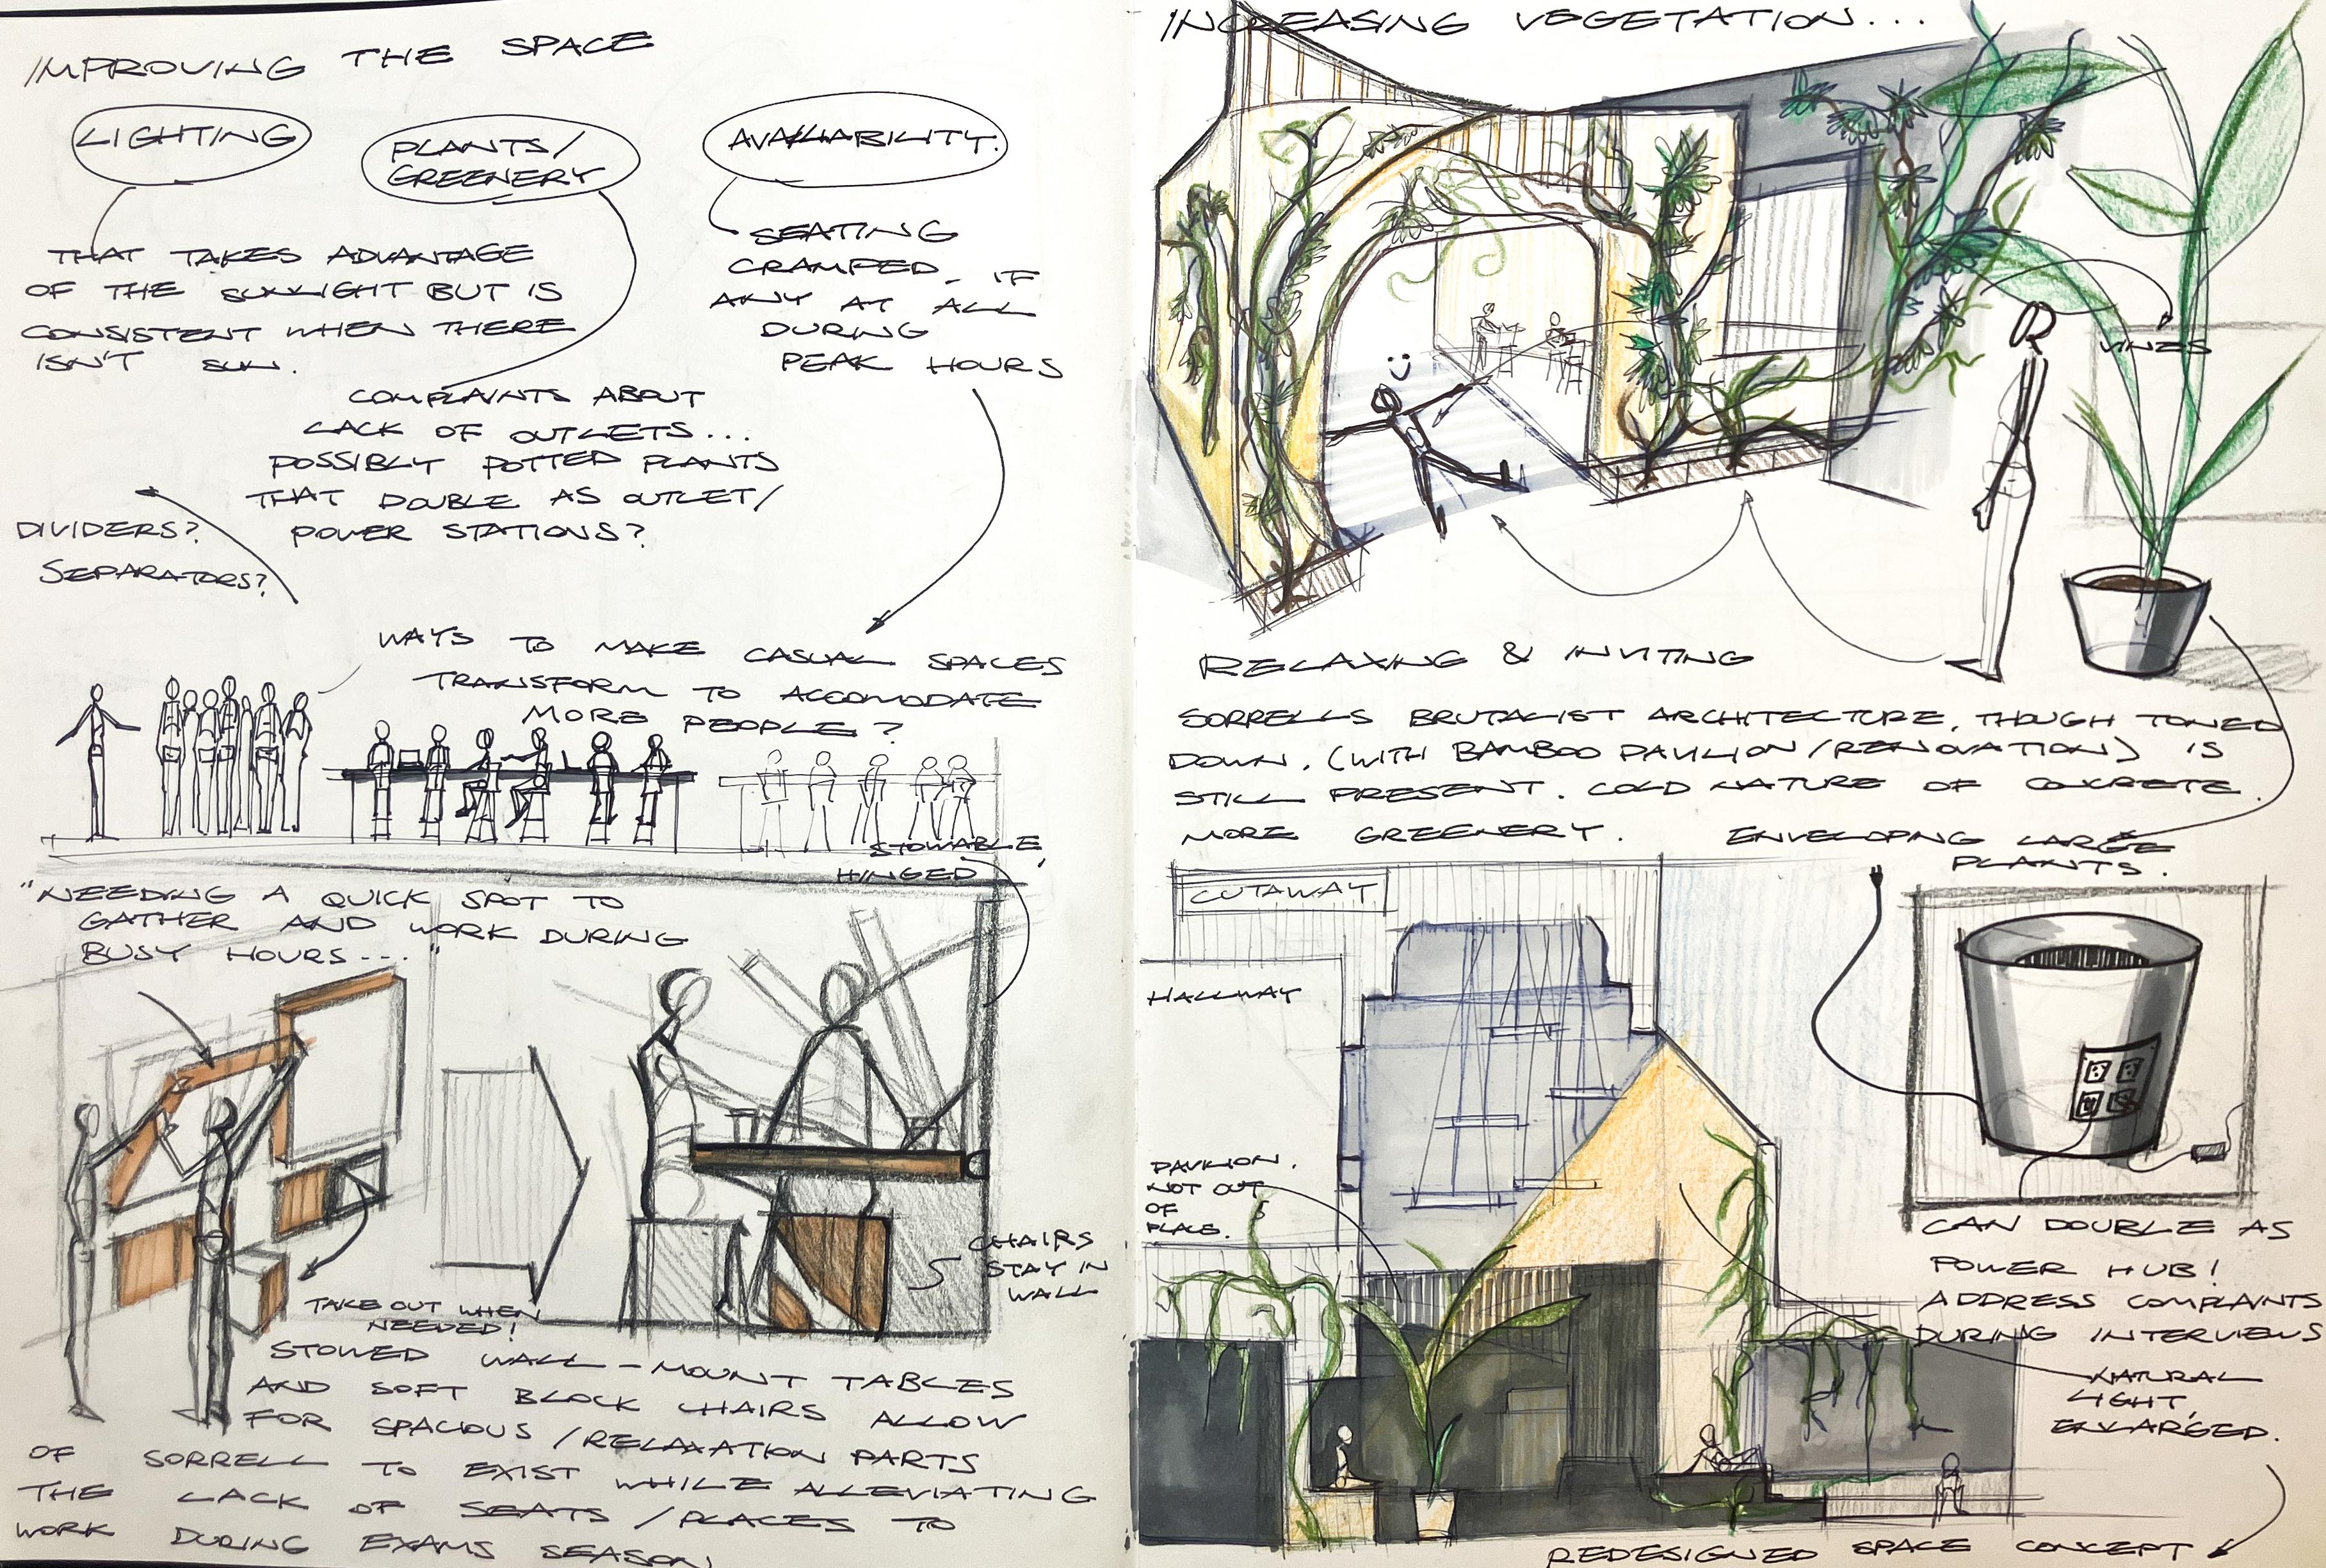 IMPROVING THE SPACE
LIGHTING
PLANTS/
GREENERY
AVAILABILITY.
THAT TAKES ADVANTAGE
OF THE SUNLIGHT BUT IS
CONSISTENT WHEN THERE
ISN'T SUN.
SEATING
CRAMPED, IF
ANY AT ALL
DURING
PEAK HOURS
COMPLAINTS ABOUT
LACK OF OUTLETS...
POSSIBLY POTTED PLANTS
THAT DOUBLE AS OUTLET/
POWER STATIONS?
DIVIDERS?
SEPARATORS?
WAYS TO MAKE CASUAL SPACES
TRANSFORM TO ACCOMODATE
MORE PEOPLE?
STOWABLE,
HINGED
"NEEDING A QUICK SPOT TO
GATHER AND WORK DURING
BUSY HOURS..."
CHAIRS
STAY IN
WALL
TAKE OUT WHEN
NEEDED!
STOWED WALL-MOUNT TABLES
AND SOFT BLOCK CHAIRS ALLOW
FOR SPACIOUS/RELAXATION PARTS
OF SORRELL TO EXIST WHILE ALLEVIATING
THE LACK OF SEATS/PLACES TO
WORK DURING EXAMS SEASON!
INCREASING VEGETATION...
VINES
RELAXING & INVITING
SORRELLS BRUTALIST ARCHITECTURE, THOUGH TONED
DOWN. (WITH BAMBOO PAVILION/RENOVATION) IS
STILL PRESENT. COLD NATURE OF CONCRETE.
MORE GREENERY.
ENVELOPING LARGE
PLANTS.
CUTAWAY
HALLWAY
PAVILION.
NOT OUT
OF
PLACE.
CAN DOUBLE AS
POWER HUB!
ADDRESS COMPLAINTS
DURING INTERVIEWS
NATURAL
LIGHT,
ENLARGED.
REDESIGNED SPACE CONCEPT